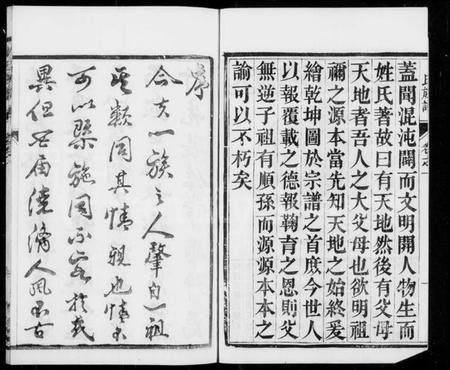 蓋聞混沌闢而文明開人物生而
姓氏著故曰有天地然後有父母
天地者吾人之大父母也欲明祖
禰之源本當先知天地之始終爰
繪乾坤圖於宗譜之首庶今世人
以報覆載之德報鞠育之恩則父
無逆子祖有順孫而源源本本之
諭可以不朽矣
序
合夫一族之人肇自一祖
其類同其情親也情未
可以槩施固不容於或
異但世屆澆漓人風不古